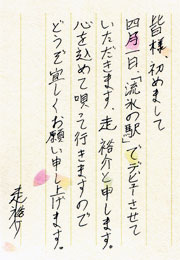 皆様、初めまして
四月一日「流氷の駅」でデビューさせて
いただきます、走裕介と申します。
心を込めて唄って行きますので
どうぞ宜しくお願い申し上げます。
走裕介